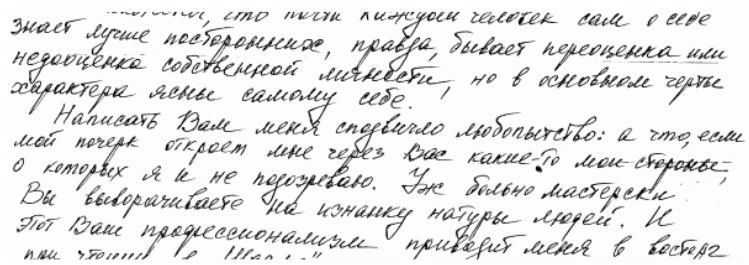 что почти каждый человек сам о себе
знает лучше посторонних, правда, бывает переоценка или
недооценка собственной личности, но в основном черты
характера ясны самому себе.
Написать Вам меня сподвигло любопытство: а что, если
мой почерк откроет мне через Вас какие-то мои стороны,
о которых я и не подозреваю. Уж больно мастерски
Вы выворачиваете на изнанку натуры людей. И
этот Ваш профессионализм приводит меня в восторг
при чтении